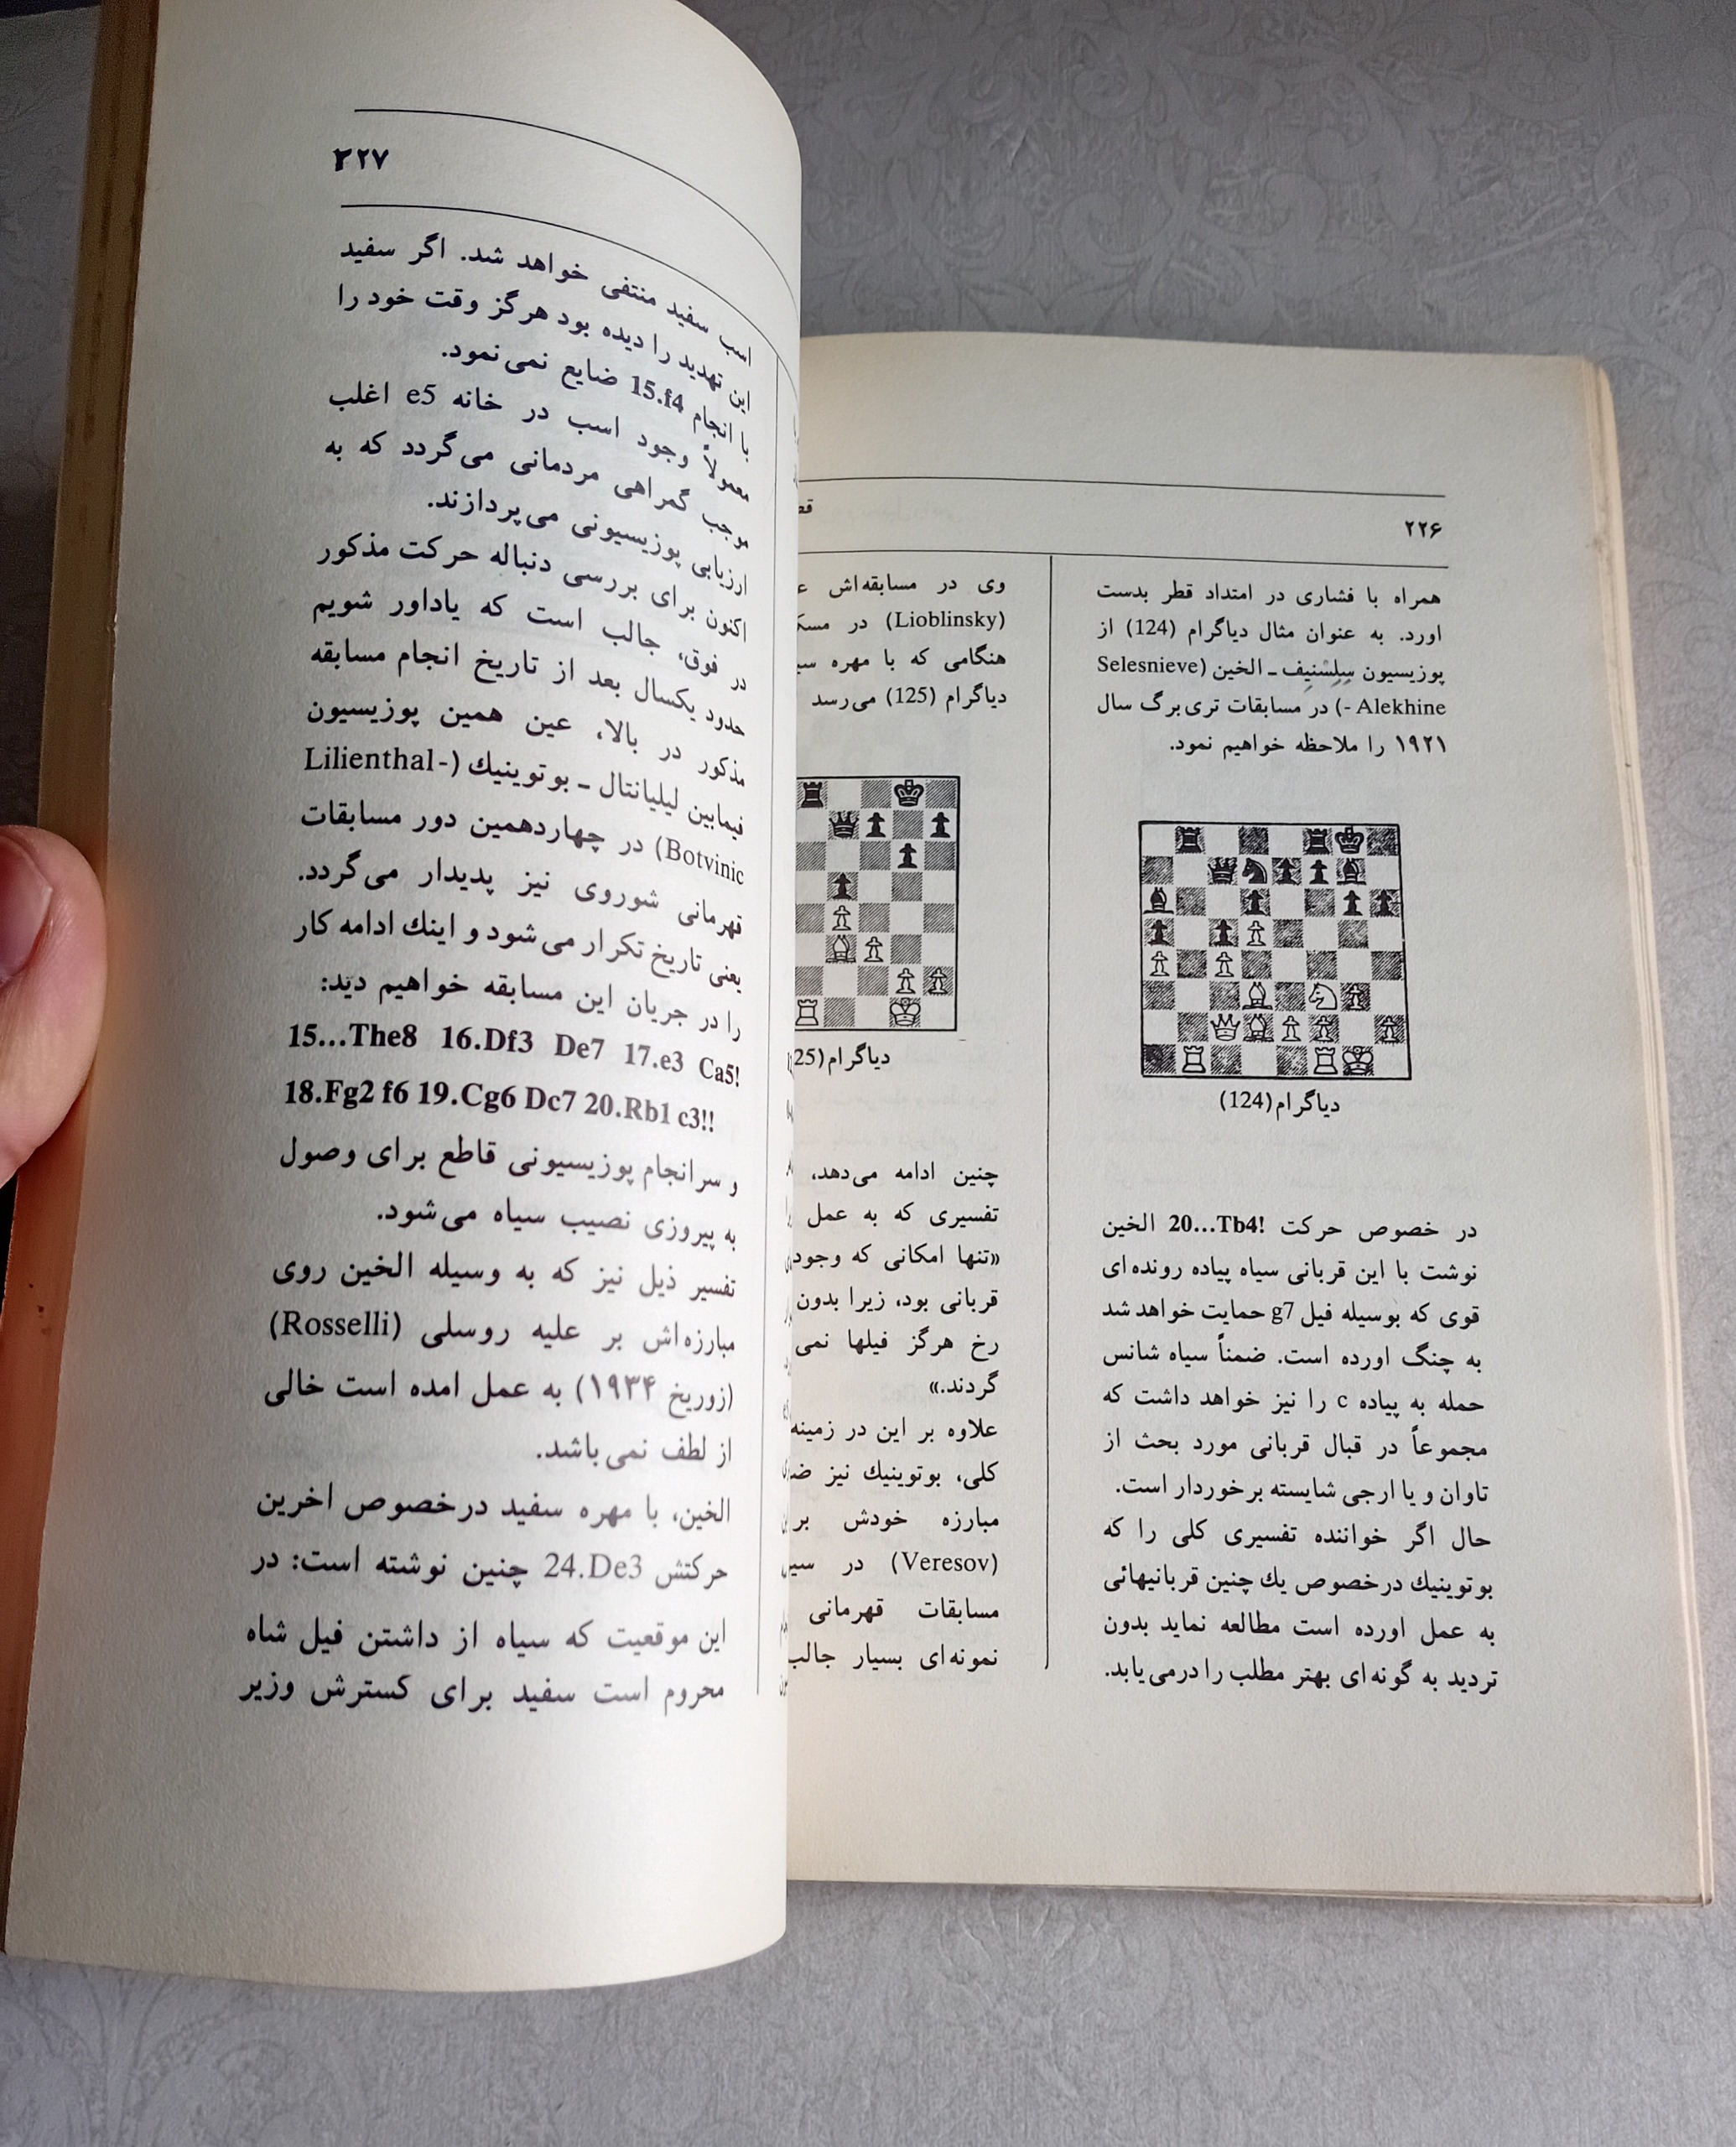 ۲۲۶
همراه با فشاری در امتداد قطر بدست
اورد. به عنوان مثال دیاگرام (124) از
پوزیسیون سِلِسْنِیف ـ الخین (Selesnieve
- Alekhine) در مسابقات تری‌برگ سال
۱۹۲۱ را ملاحظه خواهیم نمود.
دیاگرام (124)
در خصوص حرکت !20...Tb4 الخین
نوشت با این قربانی سیاه پیاده رونده‌ای
قوی که بوسیله فیل g7 حمایت خواهد شد
به چنگ اورده است. ضمناً سیاه شانس
حمله به پیاده c را نیز خواهد داشت که
مجموعاً در قبال قربانی مورد بحث از
تاوان و یا ارجی شایسته برخوردار است.
حال اگر خواننده تفسیری کلی را که
بوتوینیك درخصوص یك چنین قربانیهائی
به عمل اورده است مطالعه نماید بدون
تردید به گونه‌ای بهتر مطلب را درمی‌یابد.
وی در مسابقه‌اش
(Lioblinsky) در
هنگامی که با مهره
دیاگرام (125) می‌رسد
دیاگرام
چنین ادامه می‌دهد،
تفسیری که به عمل
«تنها امکانی که وجود
قربانی بود، زیرا بدون
رخ هرگز فیلها نمی
گردند.»
علاوه بر این در زمینه
کلی، بوتوینیك نیز
مبارزه خودش
(Veresov) در
مسابقات قهرمانی
نمونه‌ای بسیار جالب
۲۲۷
اسب سفید منتفی خواهد شد. اگر سفید
این تهدید را دیده بود هرگز وقت خود را
با انجام 15.f4 ضایع نمی‌نمود.
معمولاً وجود اسب در خانه e5 اغلب
موجب گمراهی مردمانی می‌گردد که به
ارزیابی پوزیسیونی می‌پردازند.
اکنون برای بررسی دنباله حرکت مذکور
در فوق، جالب است که یاداور شویم
حدود یکسال بعد از تاریخ انجام مسابقه
مذکور در بالا، عین همین پوزیسیون
فیمابین لیلیانتال ـ بوتوینیك (Lilienthal-
Botvinic) در چهاردهمین دور مسابقات
قهرمانی شوروی نیز پدیدار می‌گردد.
یعنی تاریخ تکرار می‌شود و اینك ادامه کار
را در جریان این مسابقه خواهیم دید:
15...The8 16.Df3 De7 17.e3 Ca5!
18.Fg2 f6 19.Cg6 Dc7 20.Rb1 c3!!
و سرانجام پوزیسیونی قاطع برای وصول
به پیروزی نصیب سیاه می‌شود.
تفسیر ذیل نیز که به وسیله الخین روی
مبارزه‌اش بر علیه روسلی (Rosselli)
(زوریخ ۱۹۳۴) به عمل امده است خالی
از لطف نمی‌باشد.
الخین، با مهره سفید درخصوص اخرین
حرکتش 24.De3 چنین نوشته است: در
این موقعیت که سیاه از داشتن فیل شاه
محروم است سفید برای گسترش وزیر